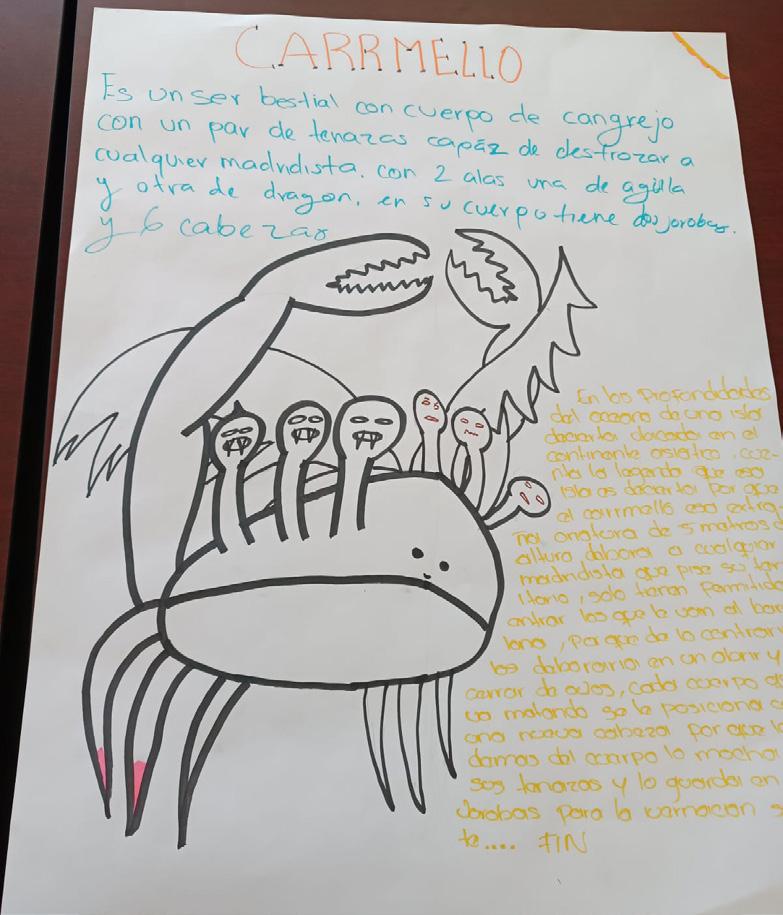 CARRMELLO
Es un ser bestial con cuerpo de cangrejo
con un par de tenazas capáz de destrozar a
cualquier madridista. con 2 alas una de agúla
y otra de dragon, en su cuerpo tiene dos jorobas.
y 6 cabezas
En las profundidades
del oceano de una isla
decierta ubicada en el
continente asiatico, cue-
nta la leganda que esa
isla es decierta por que
el carrmello esa extra
ña criatura de 5 metros d
altura debora a cualquier
madridista que pise su tar
itorio, solo tienen permitido
entrar los que le van al bar
lona, por que de lo contrari
los deboraria en un abrir y
cerrar de ojos, cada cuerpo
va matando se le posiciona
una nueva cabeza por que l
demas del cuerpo lo mocha
sus tenazas y lo guarda en
Jorobas para la
te.... FIN